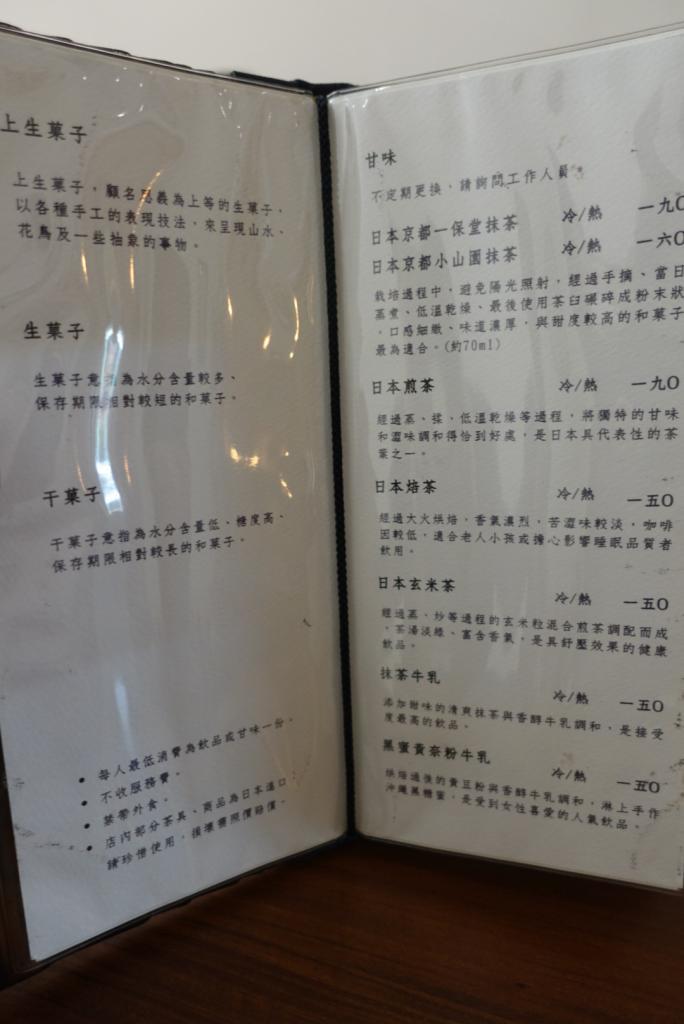 上生菓子
上生菓子，顧名思義為上等的生菓子，
以各種手工的表現技法，來呈現山水、
花鳥及一些抽象的事物。
生菓子
生菓子意指為水分含量較多、
保存期限相對較短的和菓子。
干菓子
干菓子意指為水分含量低、糖度高、
保存期限相對較長的和菓子。
• 每人最低消費為飲品或甘味一份。
• 不收服務費。
• 禁帶外食。
• 店內部分茶具、商品為日本進口，
請珍惜使用，損壞需照價賠償。
甘味
不定期更換，請詢問工作人員。
日本京都一保堂抹茶 冷/熱 一九0
日本京都小山園抹茶 冷/熱 一六0
栽培過程中，避免陽光照射，經過手摘、當日
蒸煮、低溫乾燥、最後使用茶臼碾碎成粉末狀
，口感細緻、味道濃厚，與甜度較高的和菓子
最為適合。(約70ml)
日本煎茶 冷/熱 一九0
經過蒸、揉、低溫乾燥等過程，將獨特的甘味
和澀味調和得恰到好處，是日本具代表性的茶
葉之一。
日本焙茶 冷/熱 一五0
經過大火烘焙，香氣濃烈，苦澀味較淡，咖啡
因較低，適合老人小孩或擔心影響睡眠品質者
飲用。
日本玄米茶 冷/熱 一五0
經過蒸、炒等過程的玄米粒混合煎茶調配而成
，茶湯淡綠、富含香氣，是具紓壓效果的健康
飲品。
抹茶牛乳 冷/熱 一五0
添加甜味的清爽抹茶與香醇牛乳調和，是接受
度最高的飲品。
黑蜜黃奈粉牛乳 冷/熱 一五0
烘焙過後的黃豆粉與香醇牛乳調和，淋上手作
沖繩黑糖蜜，是受到女性喜愛的人氣飲品。